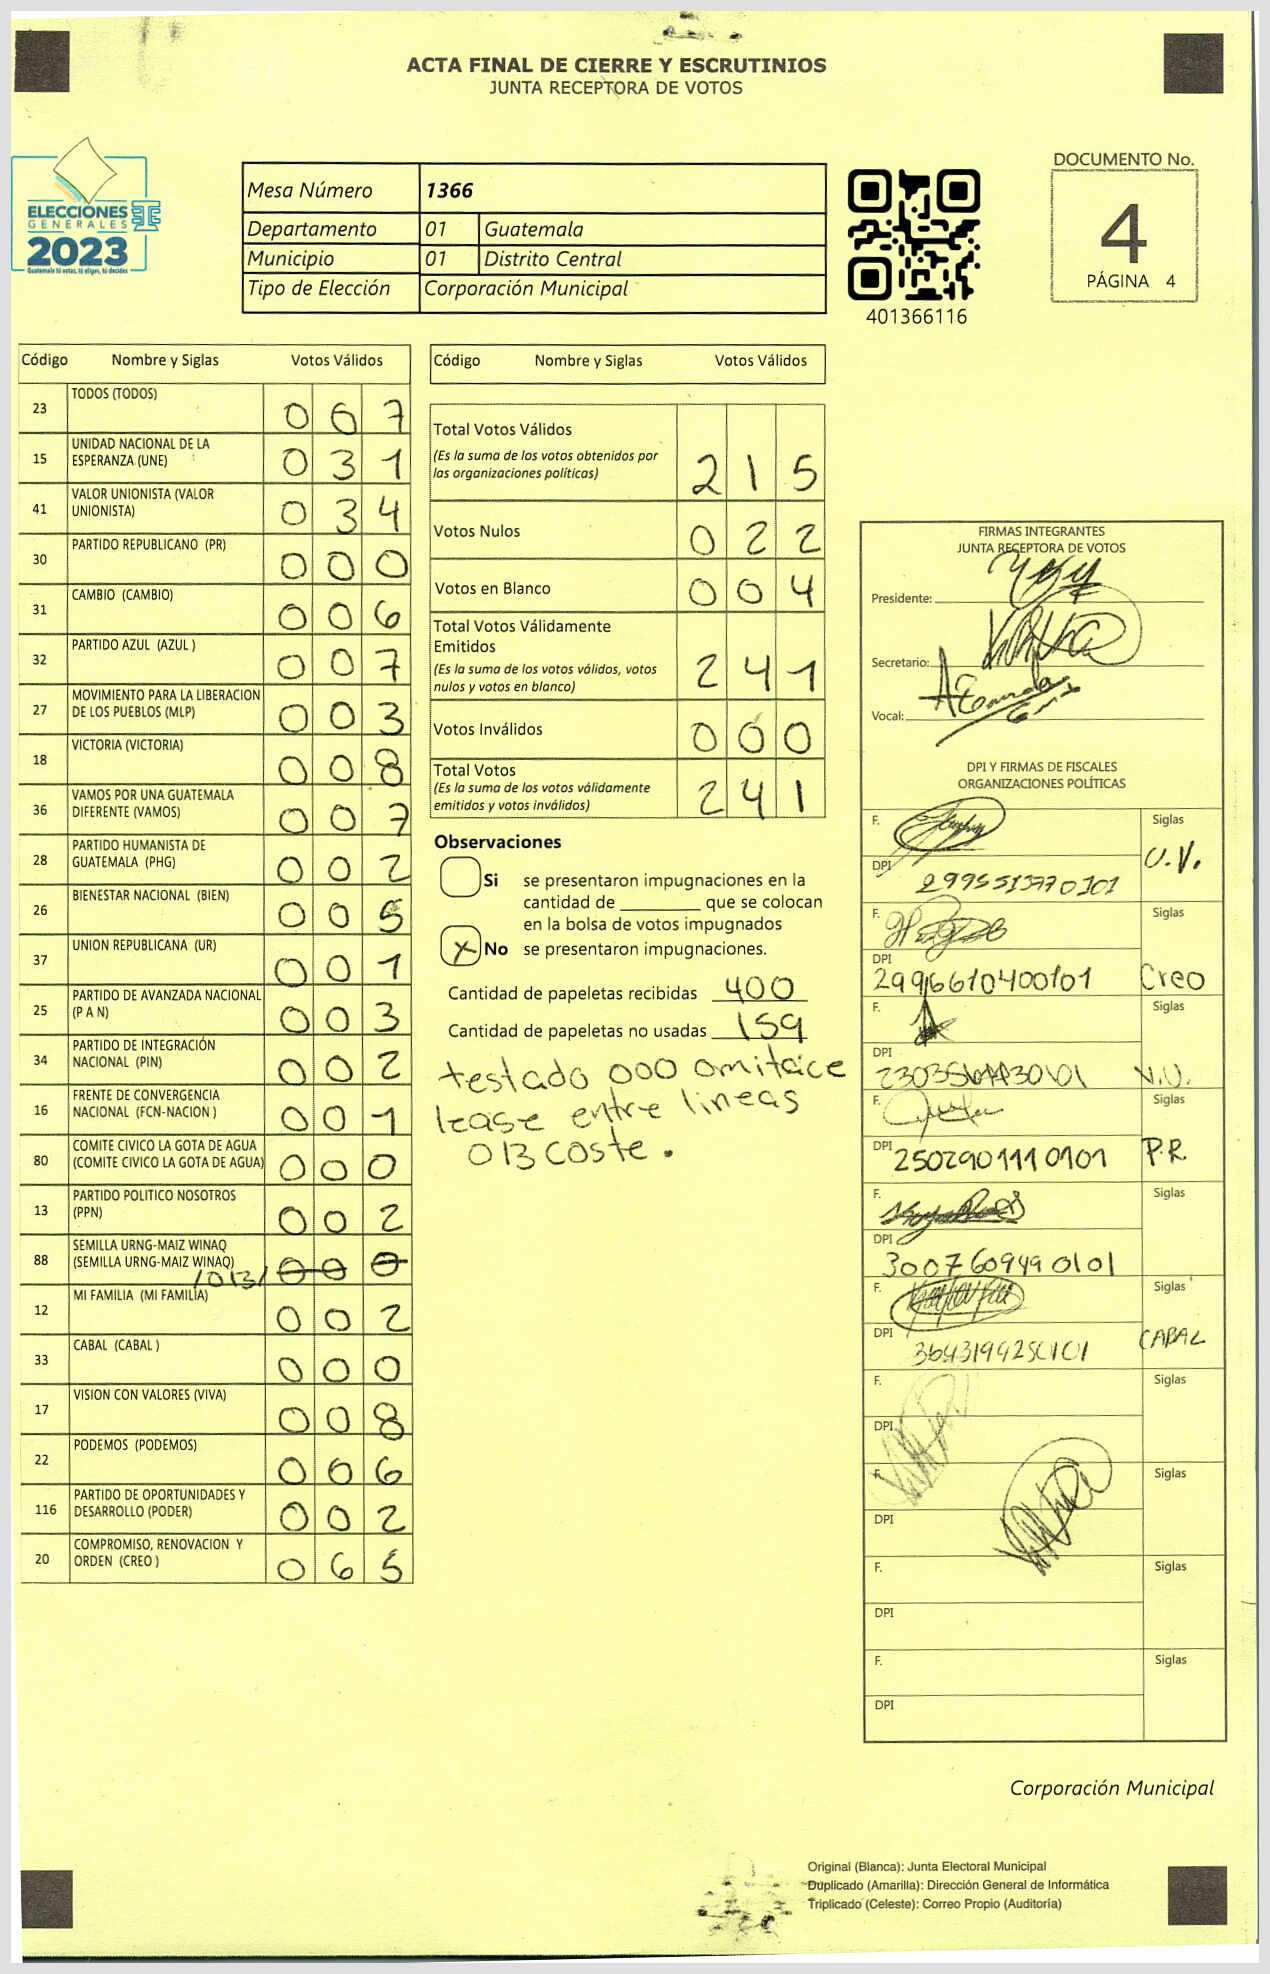 ACTA FINAL DE CIERRE Y ESCRUTINIOS
JUNTA RECEPTORA DE VOTOS
ELECCIONES
GENERALES
2023
Guatemala tú votas, tú eliges, tú decides
Mesa Número 1366
Departamento 01 Guatemala
Municipio 01 Distrito Central
Tipo de Elección Corporación Municipal
401366116
DOCUMENTO No.
4
PÁGINA 4
Código Nombre y Siglas Votos Válidos
23 TODOS (TODOS) 0 6 7
15 UNIDAD NACIONAL DE LA ESPERANZA (UNE) 0 3 1
41 VALOR UNIONISTA (VALOR UNIONISTA) 0 3 4
30 PARTIDO REPUBLICANO (PR) 0 0 0
31 CAMBIO (CAMBIO) 0 0 6
32 PARTIDO AZUL (AZUL ) 0 0 7
27 MOVIMIENTO PARA LA LIBERACION DE LOS PUEBLOS (MLP) 0 0 3
18 VICTORIA (VICTORIA) 0 0 8
36 VAMOS POR UNA GUATEMALA DIFERENTE (VAMOS) 0 0 7
28 PARTIDO HUMANISTA DE GUATEMALA (PHG) 0 0 2
26 BIENESTAR NACIONAL (BIEN) 0 0 5
37 UNION REPUBLICANA (UR) 0 0 1
25 PARTIDO DE AVANZADA NACIONAL (P A N) 0 0 3
34 PARTIDO DE INTEGRACIÓN NACIONAL (PIN) 0 0 2
16 FRENTE DE CONVERGENCIA NACIONAL (FCN-NACION ) 0 0 1
80 COMITE CIVICO LA GOTA DE AGUA (COMITE CIVICO LA GOTA DE AGUA) 0 0 0
13 PARTIDO POLITICO NOSOTROS (PPN) 0 0 2
88 SEMILLA URNG-MAIZ WINAQ (SEMILLA URNG-MAIZ WINAQ) /013/ 0 0 0
12 MI FAMILIA (MI FAMILIA) 0 0 2
33 CABAL (CABAL ) 0 0 0
17 VISION CON VALORES (VIVA) 0 0 8
22 PODEMOS (PODEMOS) 0 0 6
116 PARTIDO DE OPORTUNIDADES Y DESARROLLO (PODER) 0 0 2
20 COMPROMISO, RENOVACION Y ORDEN (CREO ) 0 6 5
Código Nombre y Siglas Votos Válidos
Total Votos Válidos 2 1 5
(Es la suma de los votos obtenidos por
las organizaciones políticas)
Votos Nulos 0 2 2
Votos en Blanco 0 0 4
Total Votos Válidamente
Emitidos 2 4 1
(Es la suma de los votos válidos, votos
nulos y votos en blanco)
Votos Inválidos 0 0 0
Total Votos 2 4 1
(Es la suma de los votos válidamente
emitidos y votos inválidos)
Observaciones
Si se presentaron impugnaciones en la
cantidad de ________ que se colocan
en la bolsa de votos impugnados
X No se presentaron impugnaciones.
Cantidad de papeletas recibidas 400
Cantidad de papeletas no usadas 159
testado 000 omitaice
lease entre lineas
013 coste.
FIRMAS INTEGRANTES
JUNTA RECEPTORA DE VOTOS
Presidente:
Secretario:
Vocal:
DPI Y FIRMAS DE FISCALES
ORGANIZACIONES POLÍTICAS
F. Siglas
U.V.
DPI 2995513770101
F. Siglas
DPI
2996610400101 Creo
F. Siglas
DPI
V.U.
F. Siglas
DPI 2502901110101 P.R.
F. Siglas
DPI
3007609490101
F. Siglas
DPI CABAL
F. Siglas
DPI
F. Siglas
DPI
F. Siglas
DPI
F. Siglas
DPI
Corporación Municipal
Original (Blanca): Junta Electoral Municipal
Duplicado (Amarilla): Dirección General de Informática
Triplicado (Celeste): Correo Propio (Auditoría)